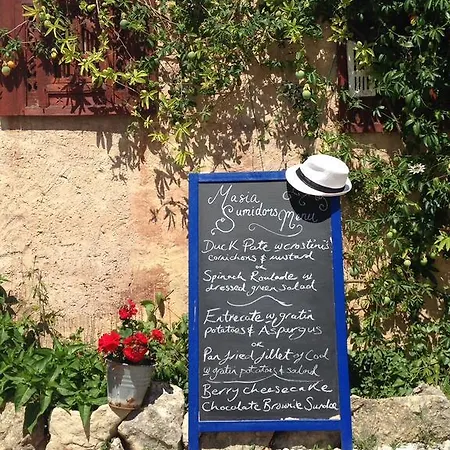 Masia
Sumidors
Menu
Duck Pate w crostini's
cornichons & mustard
or
Spinach Roulade w
dressed green salad
Entrecate w gratin
potatoes & Aspargus
or
Pan fried fillet of Cod
w gratin potatoes & salad
Berry cheesecake
Chocolate Brownie Sundae